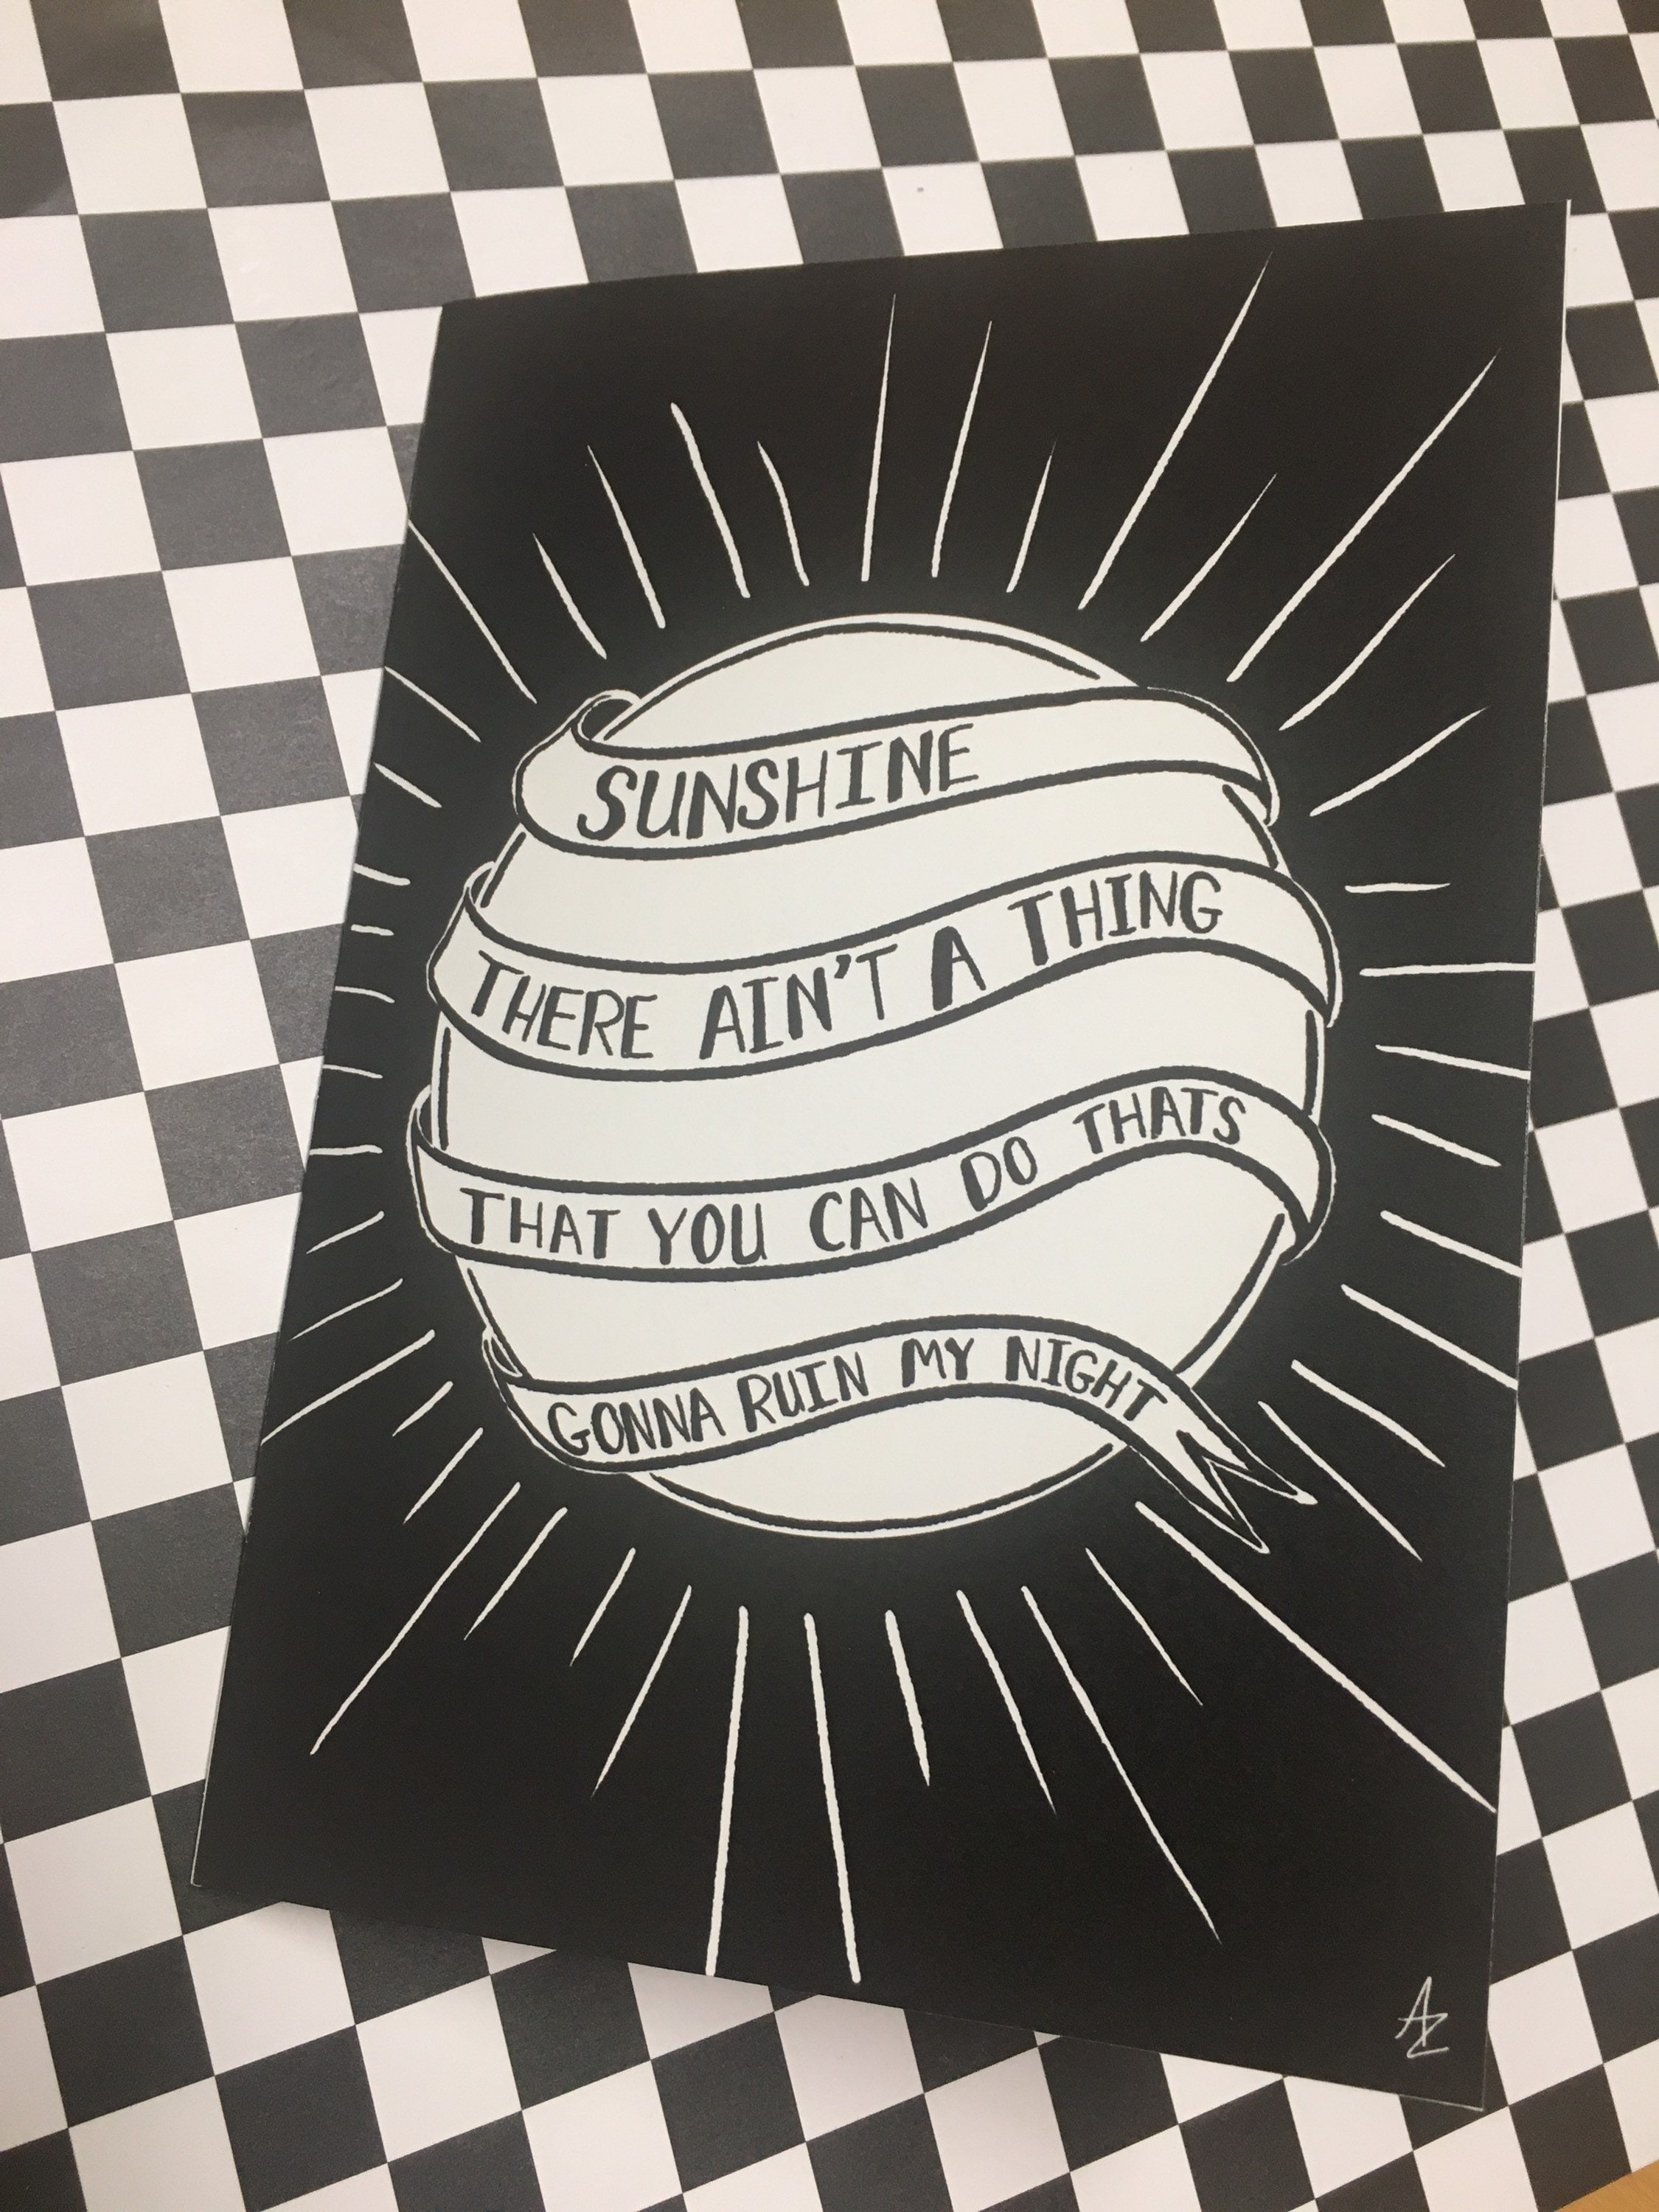 SUNSHINE
THERE AIN'T A THING
THAT YOU CAN DO THATS
GONNA RUIN MY NIGHT
AZ